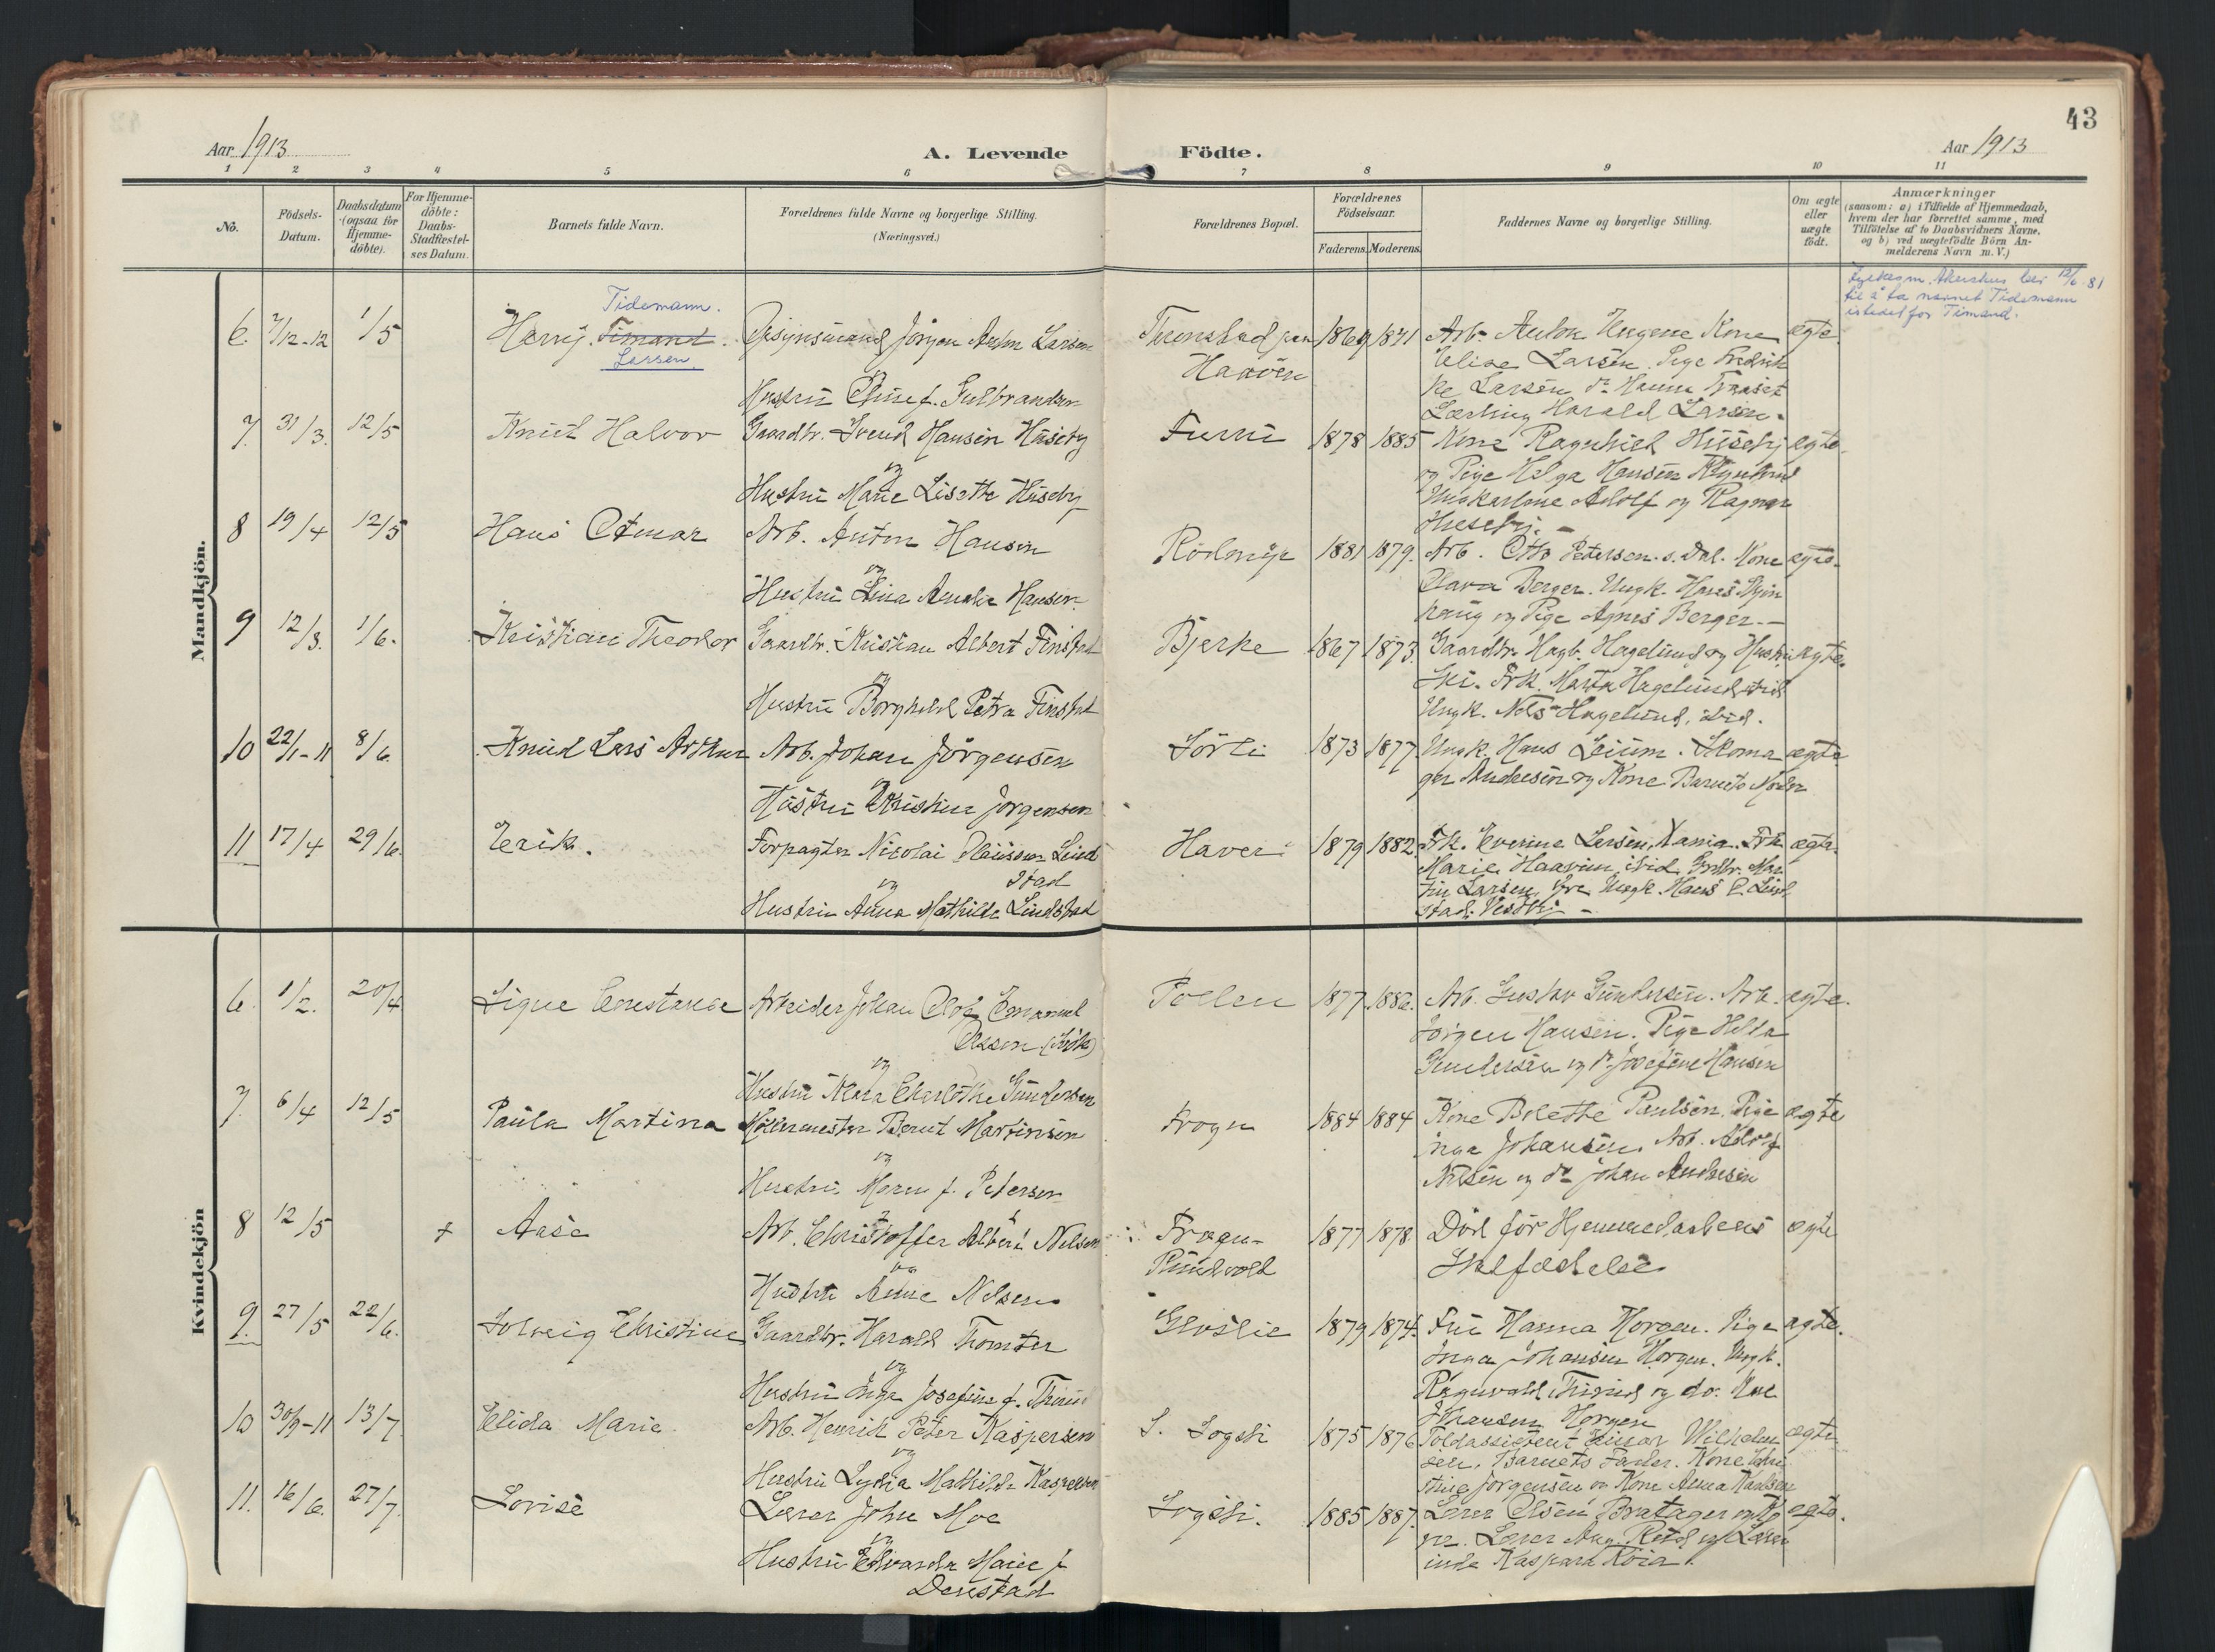 43
Aar 1913
A. Levende
Födte.
Aar 1913
1 2 3 4 5 6 7 8 9 10 11
No.
Födsels-
Datum.
Daabsdatum
(ogsaa for
Hjemme-
döbte).
For Hjemme-
döbte:
Daabs-
Stadfæstel-
ses Datum.
Barnets fulde Navn.
Forældrenes fulde Navne og borgerlige Stilling.
(Næringsvei.)
Forældrenes Bopæl.
Forældrenes
Födselsaar.
Faderens Moderens
Faddernes Navne og borgerlige Stilling.
Om ægte
eller
uægte
födt.
Anmærkninger
(saasom: a) i Tilfælde af Hjemmedaab,
hvem der har forrettet samme, med
Tilföielse af to Daabsvidners Navne,
og b) ved uægtefödte Börn An-
melderens Navn m. V.)
Mandkjön.
6. 7/12-12 1/5
Tidemann.
Harry Timand.
Larsen.
Opsynsmand Jörgen Anton Larsen
og
Hustru f. Gulbrandsen
Haaven
1869 1871
Arb. Anton Kone
Elise Larsen. Pige Fredrik
ke Larsen do Hanna
Lærling Harald Larsen.
ægte.
Akershus 12/6 81
til å ta navnet Tidemann
istedet for Timand.
7. 31/3. 12/5
Knut Halvor
Gaardbr. Svend Hansen Huseby
og
Hustru Marie Lisette Huseby
1878 1885
Kone Ragnhild Huseby
og Pige Helga Hansen
Ungkarlene Adolf og Ragnar
Huseby. -
ægte.
8 19/4 12/5
Hans Otmar
Arb. Anton Hansen
og
Hustru Lina Amalie Hansen.
Rödmyr
1881 1879.
Arb. Otto Petersen. s. Dal. Kone
Clara Berger. Ungk. Hans
haug og Pige Agnes Berger. -
ægte.
9 12/3. 1/6.
Kristian Theodor
Gaardbr. Kristian Albert Finstad
og
Hustru Borghild Petra Finstad
Bjerke
1867 1873.
Gaardbr. Hagb. Hagelund og Hustru
Ski. Frk. Marta Hagelund ibid
Ungk. Nils Hagelund, ibid.
ægte.
10 22/1-11 8/6.
Knud Lars Arthur
Arb. Johan Jörgensen
og
Hustru Kristine Jörgensen
Sörli
1873 1877
Ungk. Hans Leium. Skoma
ger Andresen og Kone. Barnets Moder
ægte
11 17/4 29/6.
Erik.
Forpagter Nicolai Lind
stad
og
Hustru Anna Mathilde Lindstad
Haver
1879 1882.
Frk. Evenine Larsen, Frk.
Marie Haavin ibid. Grdbr. Mar
tin Larsen, Ungk. Hans C. Lind
stad. Vestby -
ægte.
Kvindekjön
6. 1/2. 20/4
Signe Constance
Arbeider Johan Olof Emanuel
Olsson.
og
Hustru Charlothe Gundersen
Pollen
1877. 1886.
Arb. Gustav Gundersen. Arb.
Jörgen Hansen. Pige Hilda
Gundersen og do Josefine Hansen
ægte.
7. 6/4 12/5
Paula Martina
Möllermester Bernt Martinsen
og
Hustru Maren f. Petersen
Frogn
1884 1884
Kone Bolette Paulsen. Pige
Inga Johansen. Arb. Adolf
Nilsen og do Johan Andresen
ægte
8 12/5 +
Aase
Arb. Christoffer Albert Nilsen
og
Hustru Anne Nilsen
Frogn-
Rundvold
1877 1878.
Död för Hjemmedaabens
Stadfæstelse.
ægte
9. 27/5 22/6.
Solveig Christine
Gaardbr. Harald Tromter
og
Hustru Inga Josefine f.
Gloslie
1879 1874.
Fru Hanna Horgen. Pige
Inga Johansen Horgen. Ungk.
Ragnvald og do.
Johansen Horgen
ægte.
10 30/9-11 13/7
Elida Marie
Arb. Henrik Peter Kaspersen
og
Hustru Lydia Mathilde Kaspersen
S. Sogsti
1875 1876
Toldassistent Einar Wilhelm
sen. Barnets Fader. Kone
stine Jörgensen og Kone Anna Karlsen
ægte
11. 16/6. 27/7.
Lovise
Lærer John Moe
og
Hustru Edvarda Marie f
Denstad
Sogsti.
1885 1887.
Lærer Olsen Bratager og
Lærer Aug. og Lærer
inde Kaspara
ægte.